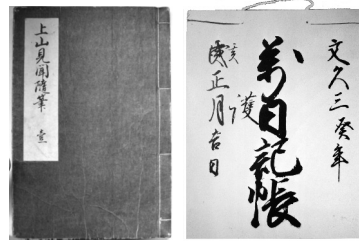 上山見聞隨筆 壹
文久三癸年
萬日記帳
正月吉日